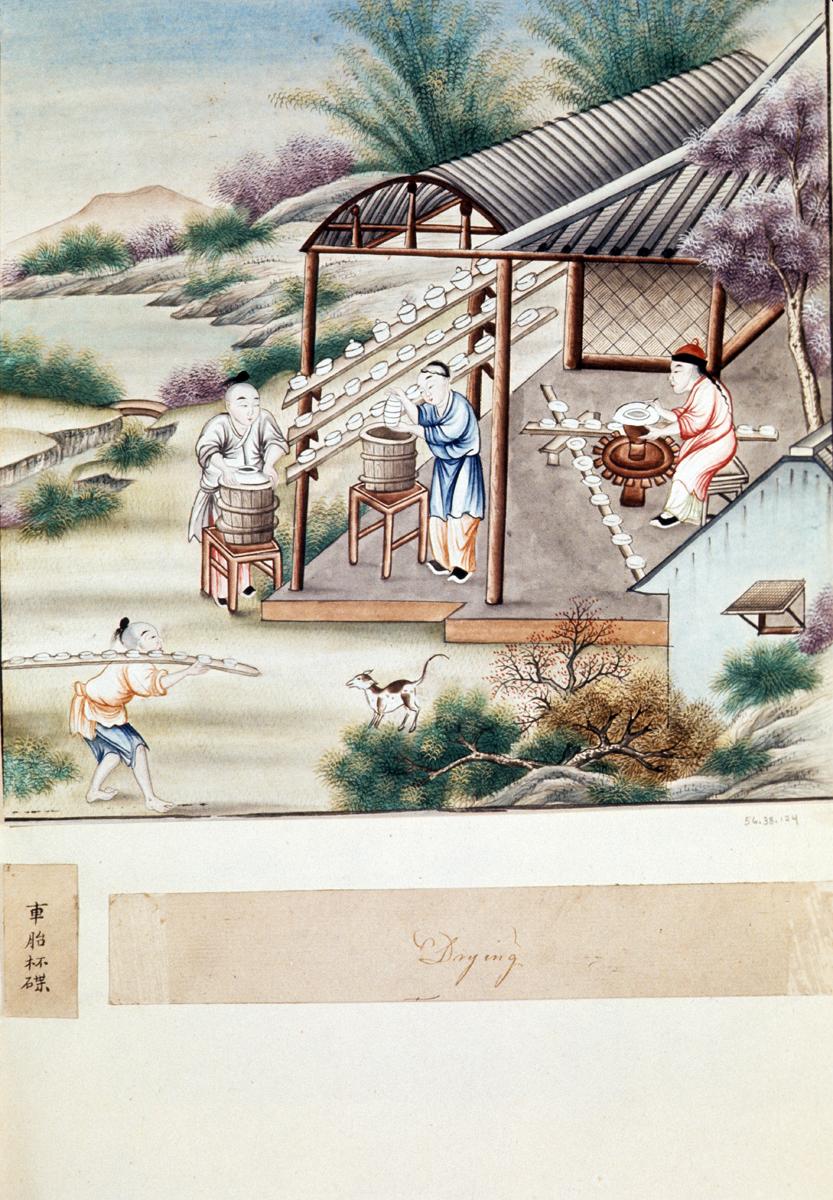 56.38.124
車胎杯碟
Drying